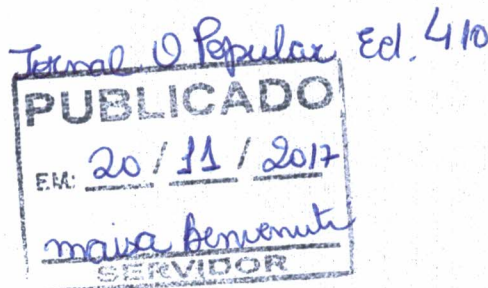 Jornal O Popular Ed. 410
PUBLICADO
EM: 20 / 11 / 2017
maisa Benvenuti
SERVIDOR